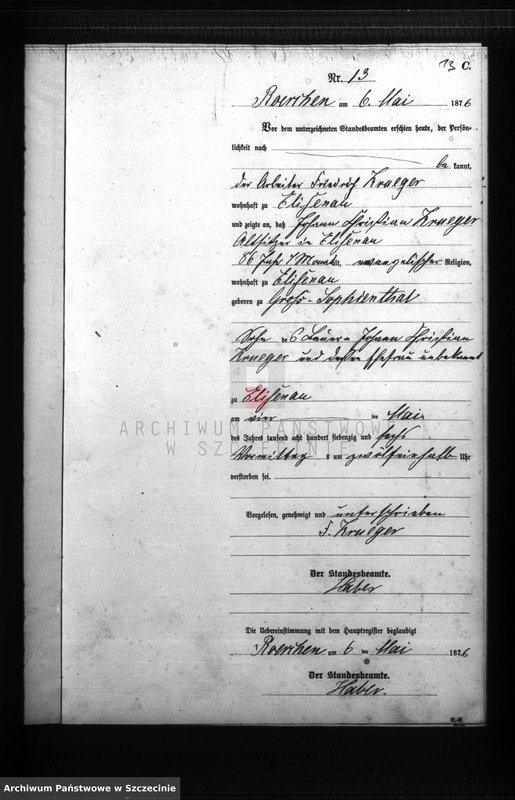 13 C.
Nr. 13
Roerchen am 6. Mai 1876
Vor dem unterzeichneten Standesbeamten erschien heute, der Persön-
lichkeit nach
be kannt,
der Arbeiter Friedrich Krueger
wohnhaft zu Elisenau
und zeigte an, daß Johann Christian Krueger
Altsitzer in Elisenau
86 Jahr 7 Monat alt, evangelischer Religion,
wohnhaft zu Elisenau
geboren zu Gross-Sophienthal
Sohn des Bauern Johann Christian
Krueger und dessen Ehefrau unbekannt
zu Elisenau
am vier ten Mai
des Jahres tausend acht hundert siebenzig und sechs
Vormittag s um zwölfeinhalb Uhr
verstorben sei.
Vorgelesen, genehmigt und unterschrieben
F. Krueger
Der Standesbeamte.
Haber
Die Uebereinstimmung mit dem Hauptregister beglaubigt
Roerchen am 6 ten Mai 1876
Der Standesbeamte.
Haber.
ARCHIWUM PAŃSTWOWE
W SZCZECINIE
Archiwum Państwowe w Szczecinie